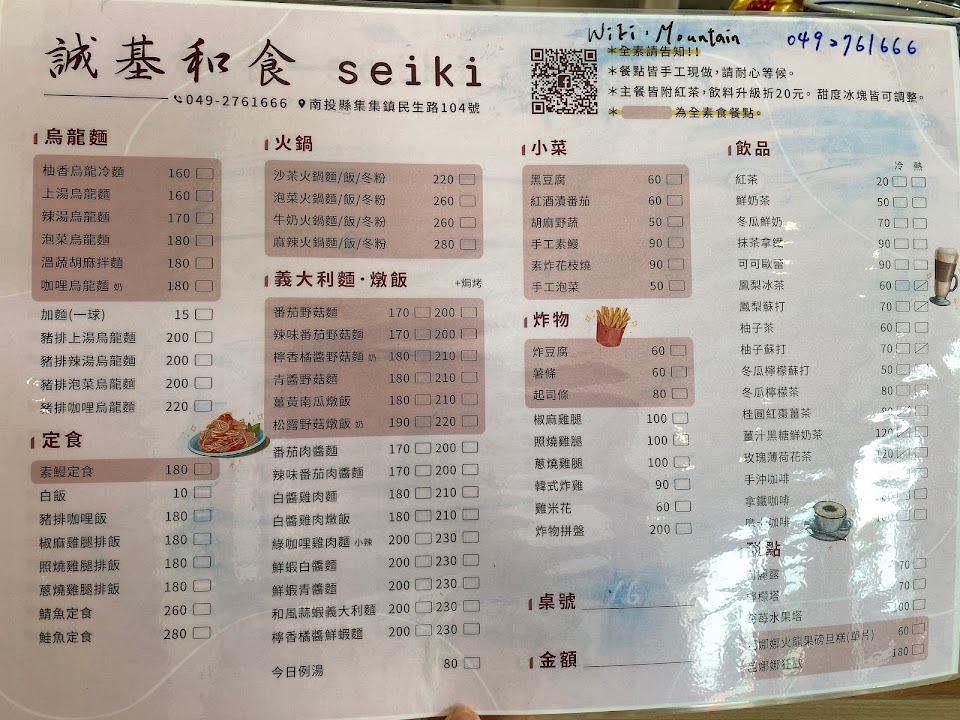 誠基和食 seiki
049-2761666 南投縣集集鎮民生路104號
WiFi · Mountain 049 2761666
＊全素請告知!!
＊餐點皆手工現做，請耐心等候。
＊主餐皆附紅茶，飲料升級折20元。 甜度冰塊皆可調整。
＊ 為全素食餐點。
烏龍麵
柚香烏龍冷麵 160
上湯烏龍麵 160
辣湯烏龍麵 170
泡菜烏龍麵 180
溫蔬胡麻拌麵 180
咖哩烏龍麵 奶 180
加麵(一球) 15
豬排上湯烏龍麵 200
豬排辣湯烏龍麵 200
豬排泡菜烏龍麵 200
豬排咖哩烏龍麵 220
定食
素鰻定食 180
白飯 10
豬排咖哩飯 180
椒麻雞腿排飯 180
照燒雞腿排飯 180
蔥燒雞腿排飯 180
鯖魚定食 260
鮭魚定食 280
火鍋
沙茶火鍋麵/飯/冬粉 220
泡菜火鍋麵/飯/冬粉 260
牛奶火鍋麵/飯/冬粉 260
麻辣火鍋麵/飯/冬粉 280
義大利麵·燉飯 +焗烤
番茄野菇麵 170 200
辣味番茄野菇麵 170 200
檸香橘醬野菇麵 奶 180 210
青醬野菇麵 180 210
薑黃南瓜燉飯 180 210
松露野菇燉飯 奶 190 220
番茄肉醬麵 170 200
辣味番茄肉醬麵 170 200
白醬雞肉麵 180 210
白醬雞肉燉飯 180 210
綠咖哩雞肉麵 小辣 200 230
鮮蝦白醬麵 200 230
鮮蝦青醬麵 200 230
和風蒜蝦義大利麵 200 230
檸香橘醬鮮蝦麵 200 230
今日例湯 80
小菜
黑豆腐 60
紅酒漬番茄 60
胡麻野蔬 50
手工素鰻 90
素炸花枝燒 90
手工泡菜 50
炸物
炸豆腐 60
薯條 60
起司條 80
椒麻雞腿 100
照燒雞腿 100
蔥燒雞腿 100
韓式炸雞 90
雞米花 60
炸物拼盤 200
桌號
金額
飲品
冷 熱
紅茶 20
鮮奶茶 50
冬瓜鮮奶 70
抹茶拿鐵 90
可可歐蕾 90
鳳梨冰茶 60
鳳梨蘇打 70
柚子茶 60
柚子蘇打 70
冬瓜檸檬蘇打 50
冬瓜檸檬茶 80
桂圓紅棗薑茶
薑汁黑糖鮮奶茶 120
玫瑰薄荷花茶 120
手沖咖啡
拿鐵咖啡
咖啡
點
露 70
檸檬塔 70
莓水果塔 100
娜火龍果磅旦糕(單片) 60
娜娜狂 180